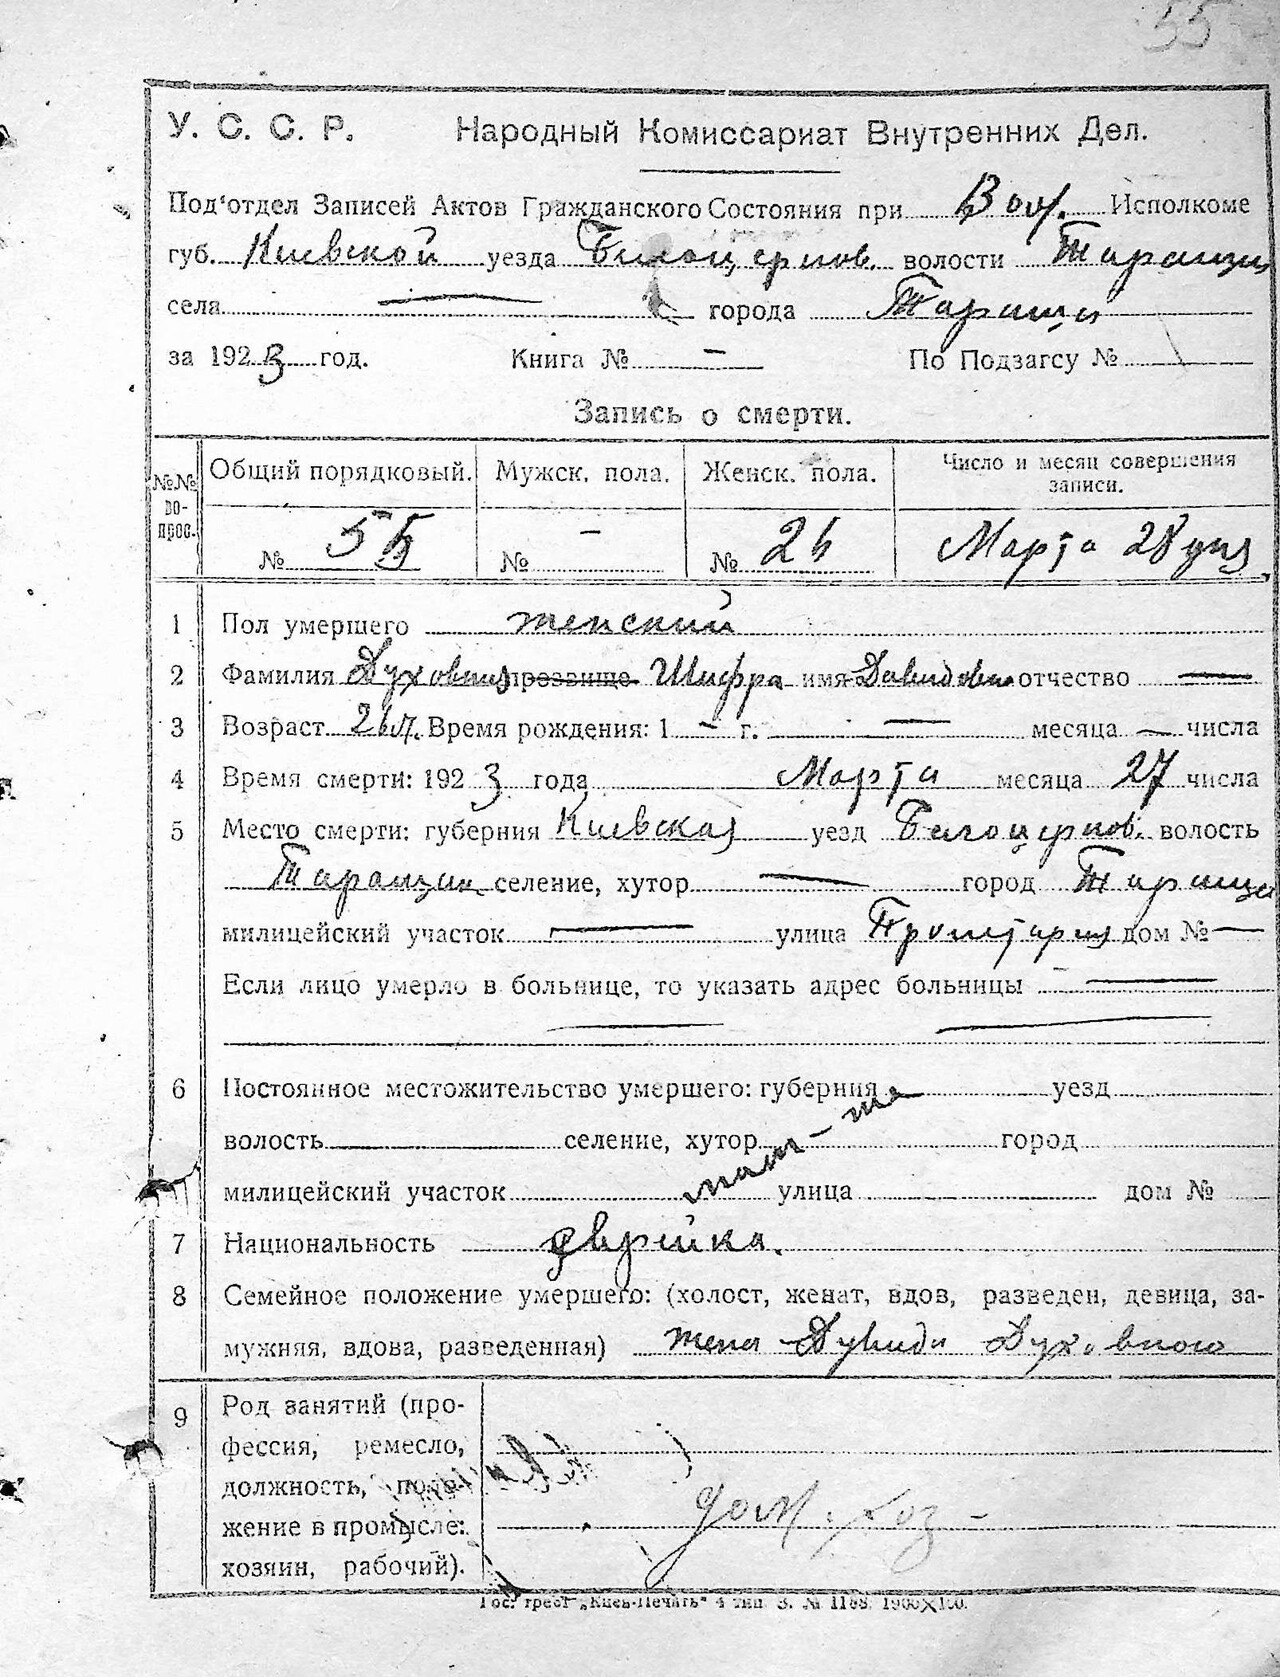 55
У. С. С. Р. Народный Комиссариат Внутренних Дел.
Под'отдел Записей Актов Гражданского Состояния при Вол. Исполкоме
губ. Киевской уезда Билоцерков. волости Таращан
села — города Тараща
за 1923 год. Книга № — По Подзагсу №
Запись о смерти.
№№ вопрос. Общий порядковый. Мужск. пола. Женск. пола. Число и месяц совершения записи.
№ 55 № — № 26 Марта 28 дня
1 Пол умершего женский
2 Фамилия Духовная прозвище Шифра имя Давидовна отчество —
3 Возраст 26 л. Время рождения: 1 — г. — месяца — числа
4 Время смерти: 1923 года Марта месяца 27 числа
5 Место смерти: губерния Киевская уезд Белоцерков. волость
Таращан. селение, хутор — город Тараща
милицейский участок — улица дом № —
Если лицо умерло в больнице, то указать адрес больницы —
— —
6 Постоянное местожительство умершего: губерния уезд
волость селение, хутор там-же город
милицейский участок улица дом №
7 Национальность еврейка.
8 Семейное положение умершего: (холост, женат, вдов, разведен, девица, за-
мужняя, вдова, разведенная) жена Духовного
9 Род занятий (про-
фессия, ремесло,
должность, поло-
жение в промысле: дом. хоз-
хозяин, рабочий).
Гос. трест „Киев-Печать“ 4 тип. З. № 1188. 1900×100.